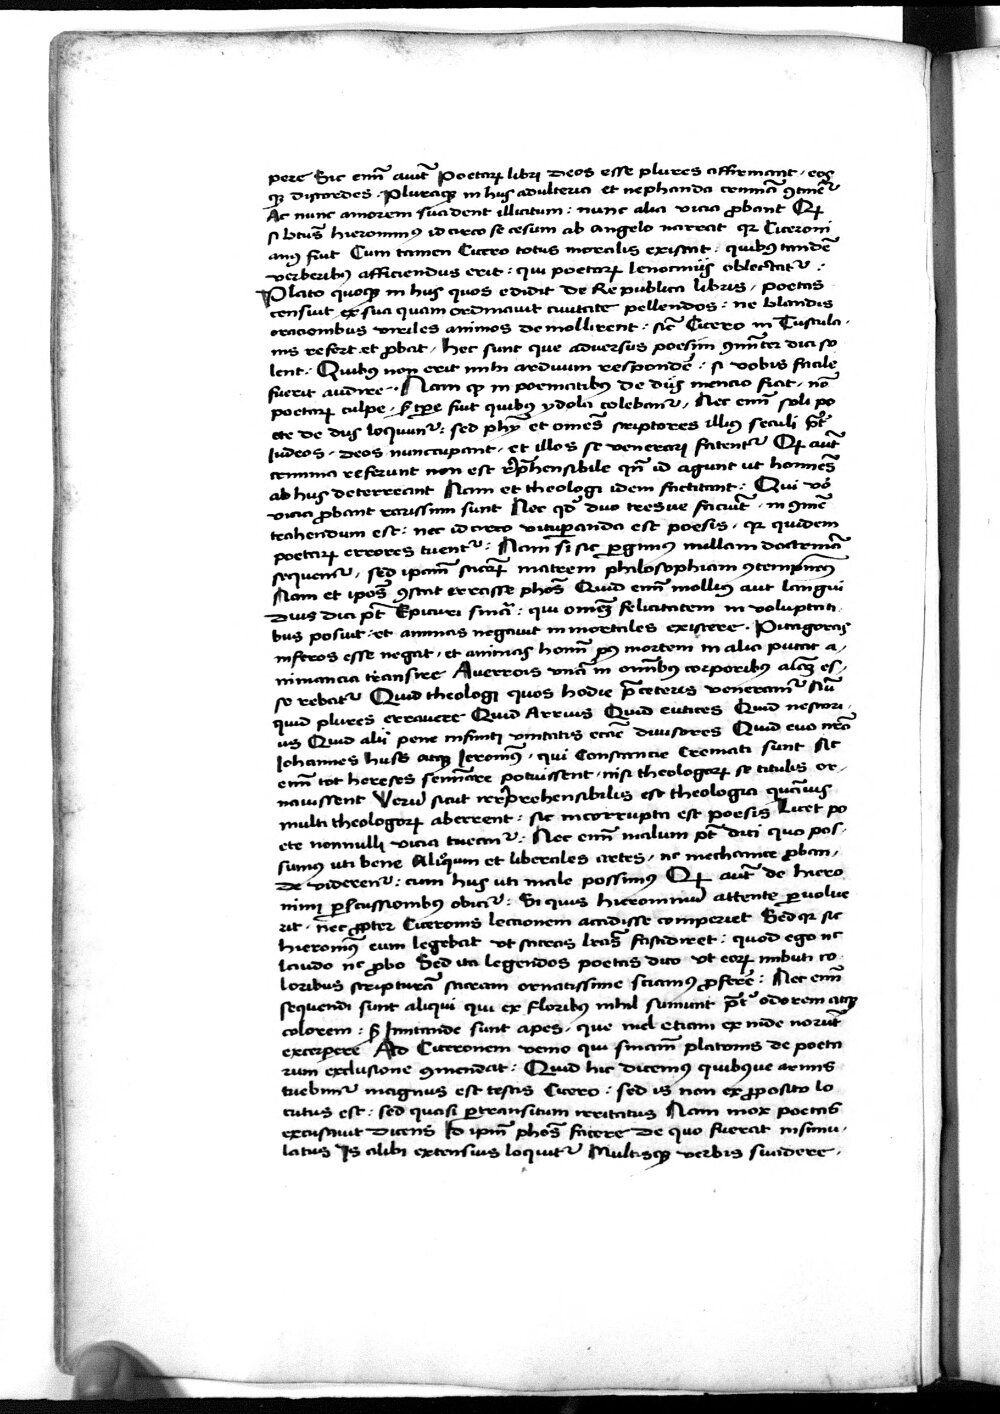 pere Sic em̄ aiūt Poetaꝝ libri deos esse plures affirmant · eosꝗ
qꝫ discordes · Pluraqꝫ in hijs adulteria et nephanda crimīa ꝯtinēt᷑
Ac nunc amorem suadent illicitum : nunc alia vicia ꝓbant Qꝫ
si btūs hieronimꝰ idcirco se cesum ab angelo narrat qꝛ Ciceroni
anꝰ fuit Cum tamen Cicero totus moralis existat : quibꝰ tandē
verberibꝰ afficiendus erit : qui poetaꝝ lenocinijs oblectat᷑ :
Plato quoqꝫ in hijs quos edidit de Re publica libris , poetas
censuit ex sua quam ordinauit ciuitate pellendos : ne blandis
oracionibus viriles animos demollirent : sic̄ Cicero in Tuscula ·
nis refert et ꝓbat , hec sunt que aduersus poesim ꝯmūiter dici so
lent : Quibus non erit mihi arduum respondē : si vobis facile
fuerit audire · Nam qꝫ in poematibꝰ de dijs mencio fiat , nō
poetaꝝ culpe , sꝫ tꝑe fuit quibꝰ ydola colebant᷑ , Nec em̄ soli po
ete de dijs loquunt᷑ : sed phī et omēs scriptores illiꝰ seculi p̄t᷑
Iudeos , deos nuncupant , et illos se venerari fatent᷑ Qꝫ aūt
crimina referunt non est rep̄hensibile qn̄ id agunt ut homīes
ab hijs deterreant Nam et theologi idem factitant : Qui vō
vicia ꝓbant rarissimi sunt Nec qd̓ duo tresue faciūt , in ꝯmē
trahendum est : nec idcirco vituꝑanda est poesis , qꝛ quidem
poetaꝝ errores tuent᷑ : Nam si sic ꝑgimꝰ nullam doctrinā
sequemur , sed ipām sacrā matrem philosophiam ꝯtempnemꝰ
Nam et ipōs ꝯstat errasse phōs Quid em̄ mollius aut langui
dius dici p̄t Epicuri sm̄ā : qui omēꝫ felicitatem in voluptati
bus posuit , et animas negauit immortales existere · Pitagoras
inferos esse negat , et animas homī post mortem in alia putat a ,
nimancia transire Auerrois vnā in omībꝰ corporibus aīaꝫ es ,
se rebat᷑ Quid theologi quos hodie p̄ ceteris veneram᷑ Nū
quid plures errauere Quid Arrius Quid eutices Quid nestori ,
us Quid alij pene infiniti vnitatis ecc̄e diuisores Quid euo nr̄o
Iohannes huss atqꝫ Ieronimꝰ , qui Constancie cremati sunt Sic
em̄ tot hereses semīare potuissent , nisi theologoꝝ se titulis or ,
nauissent Verū sicut irrep̄rehensibilis est theologia quāuis
multi theologoꝝ aberrent : sic incorrupta est poesis Licet po
ete nonnulli vicia tueant᷑ : Nec em̄ malum p̄t dici quo pos ,
sumus uti bene Alioquin et liberales artes , ac mechanice ꝓban ,
de viderent᷑ : cum hijs uti male possimꝰ Qꝫ aūt de hiero
nimi ꝑcussionibus obicit᷑ : Si quis hieronimū attente ꝑuolue
rit , nec ꝓpter Ciceronis lectionem accidisse comperiet Sed qꝛ sic
hieronimꝰ eum legebat ut sacras lrās fastidiret : quod ego nc
laudo nc ꝓbo Sed ita legendos poetas dico ut eoꝝ imbuti co
loribus scripturā sacram ornatissime sciamꝰ ꝓferre : Nec em̄
sequendi sunt aliqui qui ex floribus nihil sumunt p̄t̓ odorem atqꝫ
colorem : sꝫ Imitande sunt apes , que mel etiam ex inde norūt
excerpere Ad Ciceronem venio qui sniam̄ platonis de poeta
rum exclusione ꝯmendat : Quid hic dicemus quibusue armis
tuebimur magnus est testis Cicero : sed is non ex ꝓposito lo
cutus est : sed quasi ꝑtransitum irritatus Nam mox poetas
excusauit dicens Id ipm̄ phōs facere de quo fuerat insimu ,
latus Is alibi extensius loquit᷑ Multisqꝫ verbis suadere ,